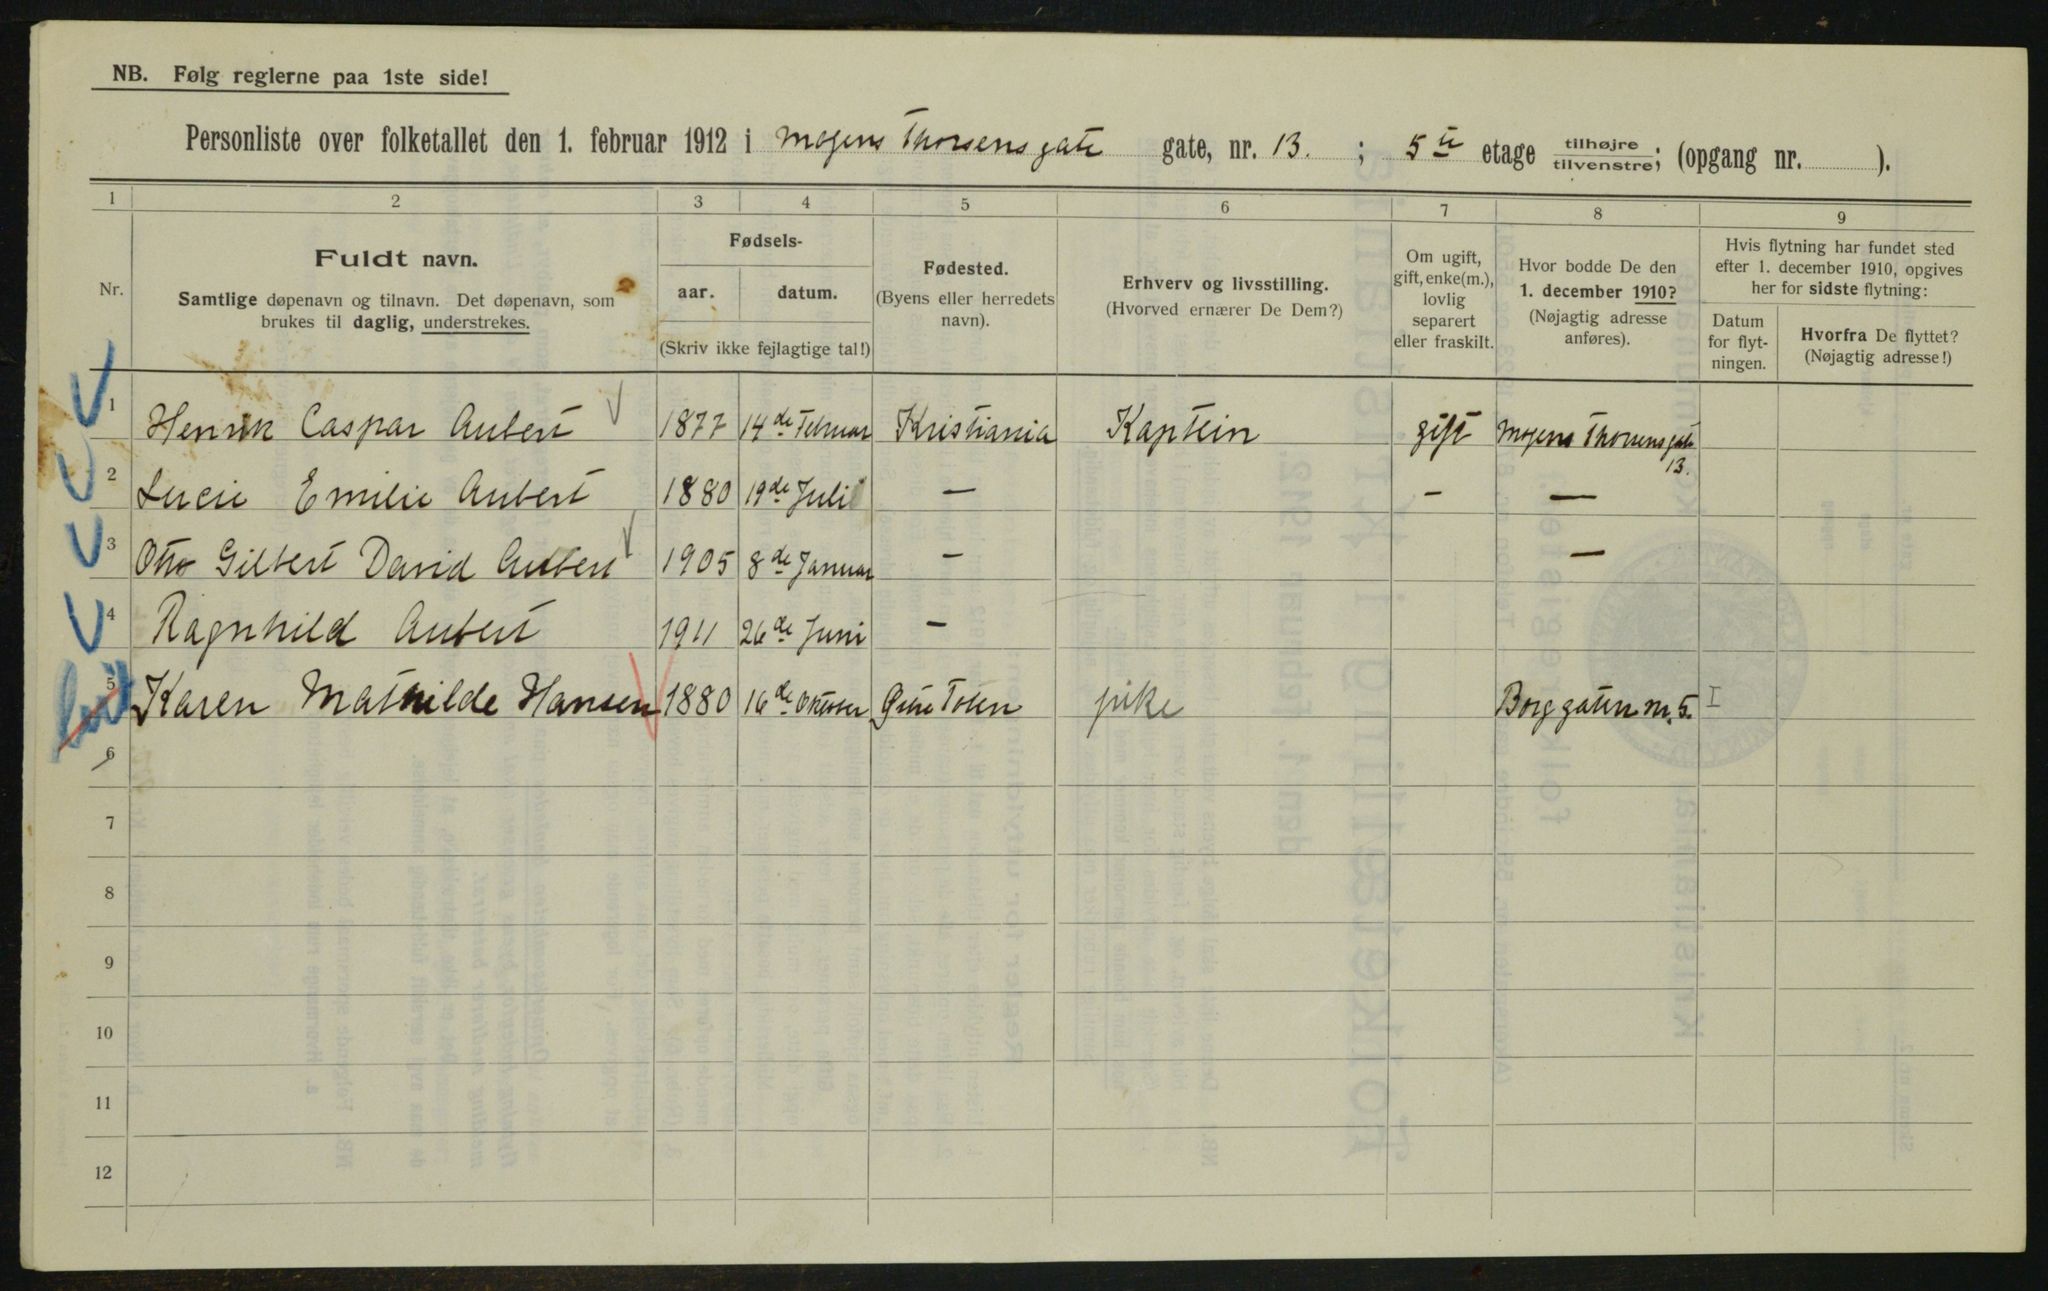 NB. Følg reglerne paa 1ste side!
Personliste over folketallet den 1. februar 1912 i Mogens Thorsensgate gate, nr. 13. ; 5te etage tilhøjre tilvenstre; (opgang nr. ).
1 2 3 4 5 6 7 8 9
Nr.
Fuldt navn.
Samtlige døpenavn og tilnavn. Det døpenavn, som
brukes til daglig, understrekes.
Fødsels-
aar. datum.
(Skriv ikke fejlagtige tal!)
Fødested.
(Byens eller herredets
navn).
Erhverv og livsstilling.
(Hvorved ernærer De Dem?)
Om ugift,
gift, enke(m.),
lovlig
separert
eller fraskilt.
Hvor bodde De den
1. december 1910?
(Nøjagtig adresse
anføres).
Hvis flytning har fundet sted
efter 1. december 1910, opgives
her for sidste flytning:
Datum
for flyt-
ningen.
Hvorfra De flyttet?
(Nøjagtig adresse!)
1 Henrik Caspar Aubert 1877 14de Februar Kristiania Kaptein gift Mogens Thorsensgate
13.
2 Lucie Emilie Aubert 1880 19de Juli — - —
3 Otto Gilbert David Aubert 1905 8de Januar — —
4 Ragnhild Aubert 1911 26de Juni —
5 Karen Mathilde Hansen 1880 16de Oktober Østre Toten pike Borggaten nr. 5. I
6
7
8
9
10
11
12